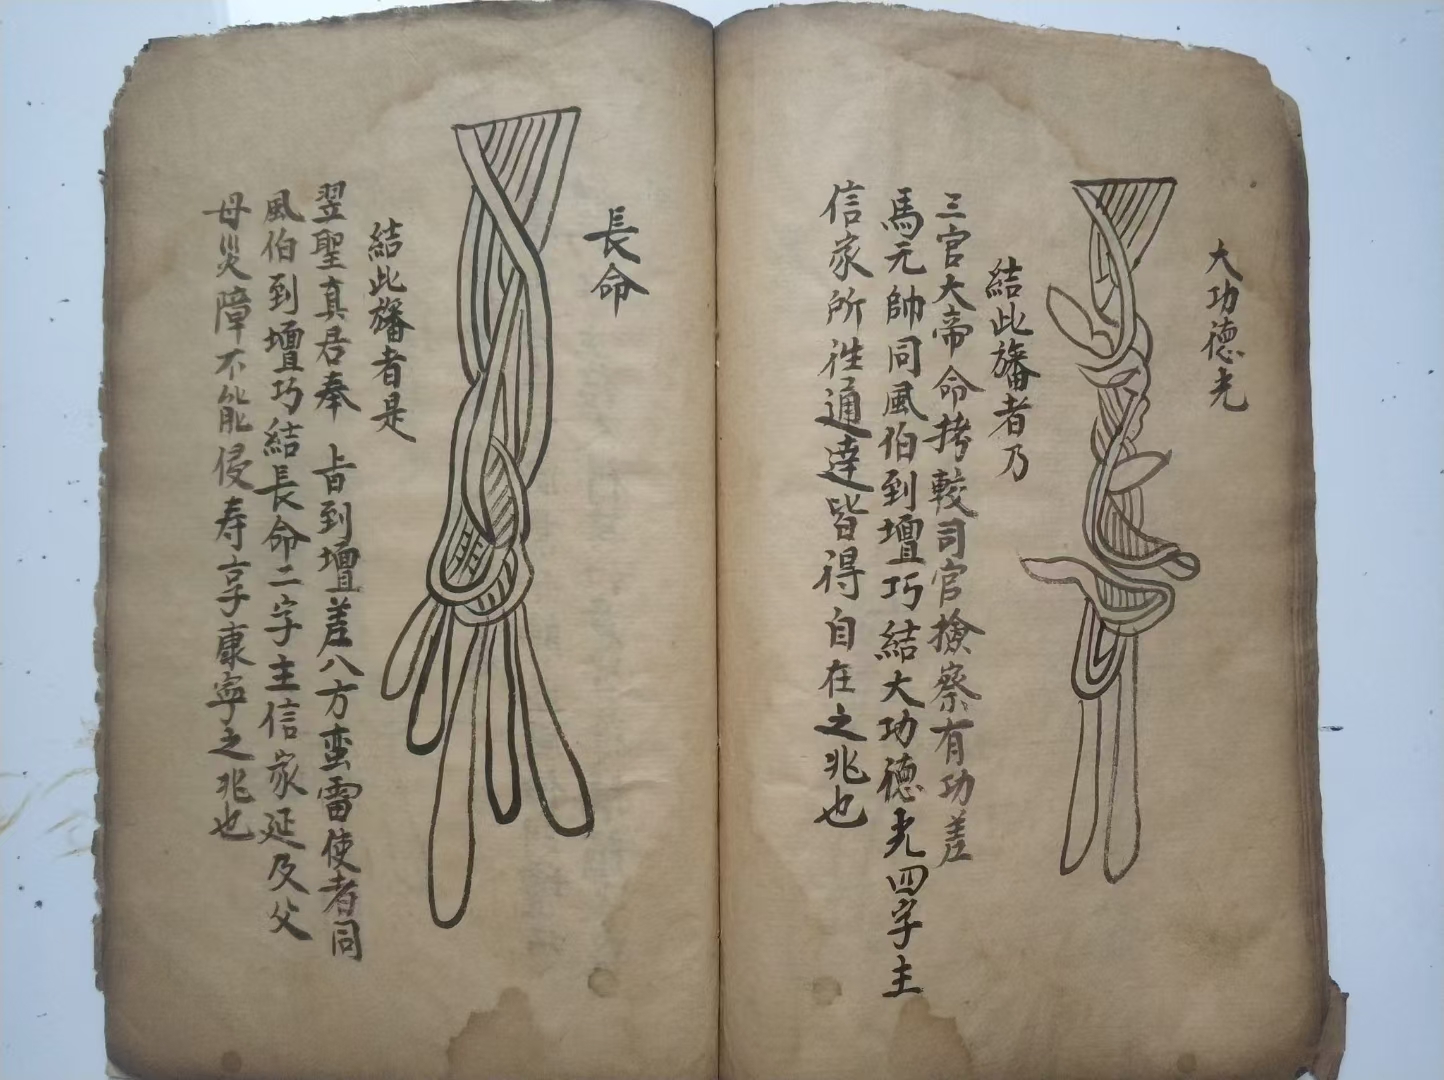 大功德光
結此旛者乃
三官大帝命拷較司官撿察有功差
馬元帥同風伯到壇巧結大功德光四字主
信家所徃通達皆得自在之兆也
長命
結此旛者是
翌聖真君奉 上旨到壇差八方蛮雷使者同
風伯到壇巧結長命二字主信家延及父
母災障不能侵寿享康寧之兆也